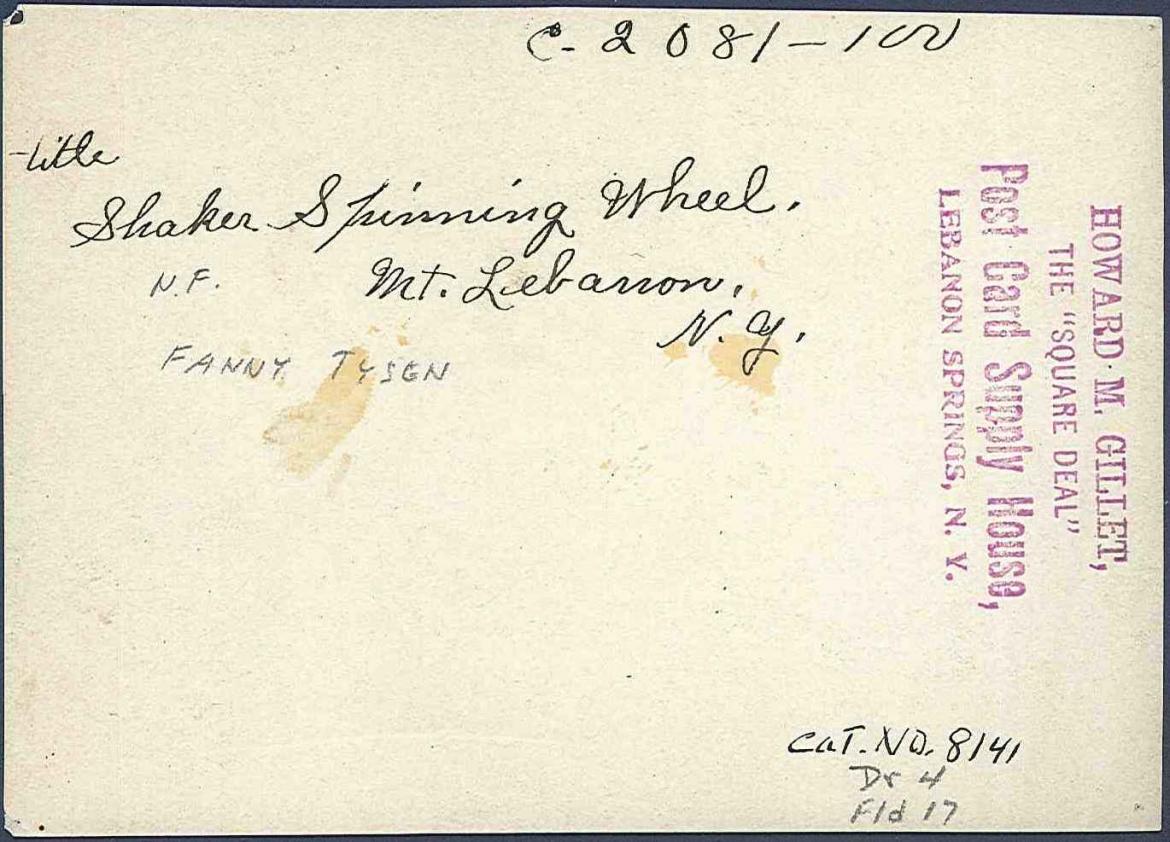 C-2081-100
title
Shaker Spinning Wheel.
N.F. Mt. Lebanon,
N.Y.
FANNY TYSEN
HOWARD M. GILLET,
THE "SQUARE DEAL"
Post Card Supply House,
LEBANON SPRINGS, N. Y.
CAT. NO. 8141
Dr 4
Fld 17